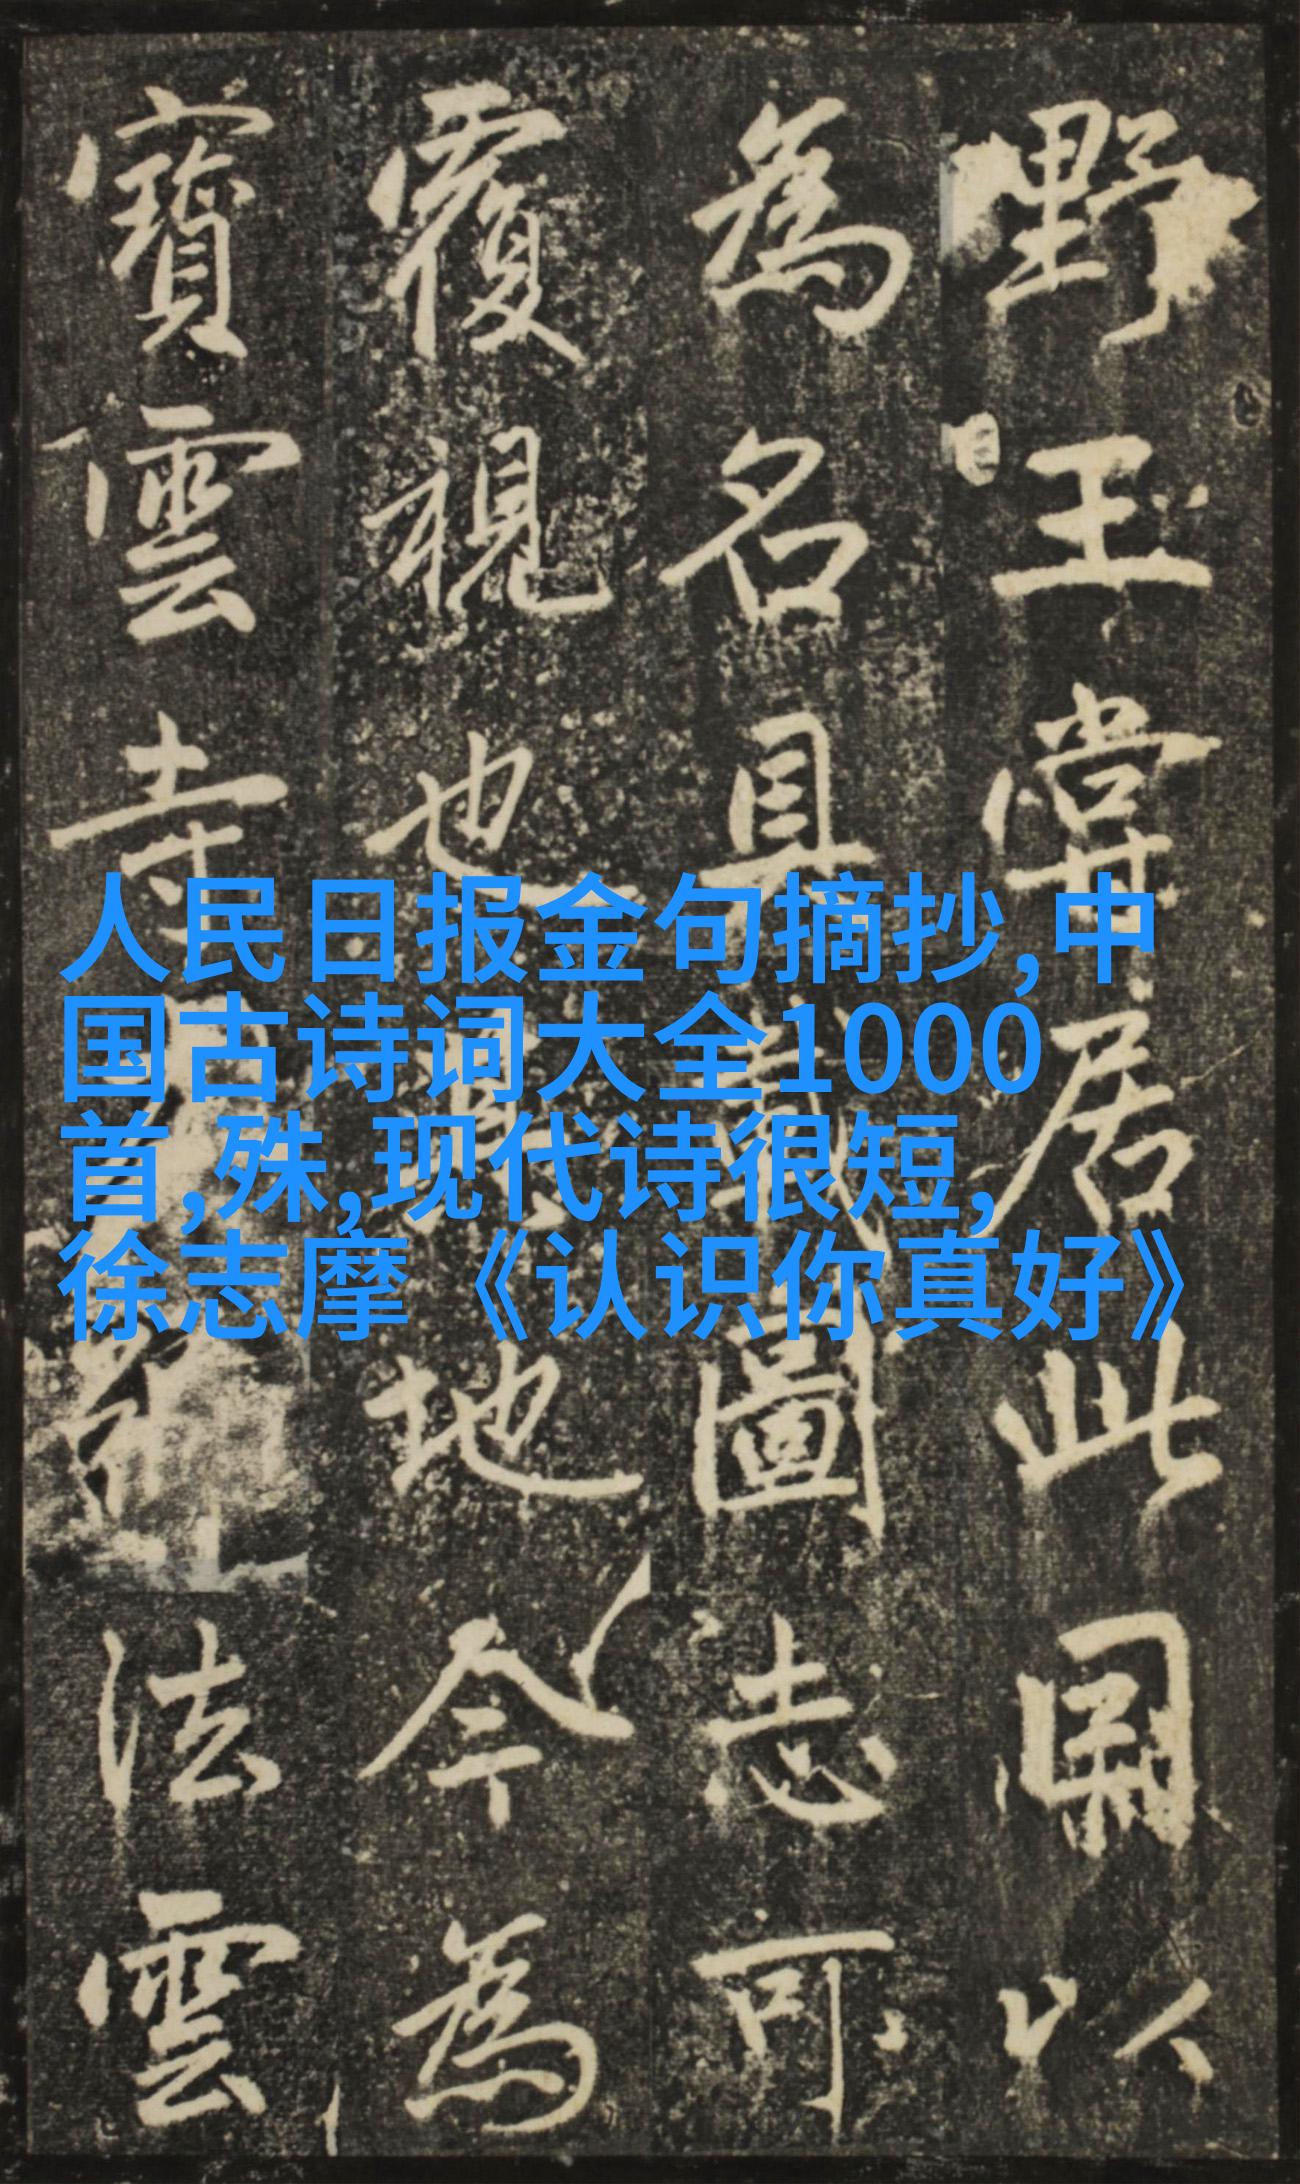 野王嘗居此以
為名具載圖志可
覆視也其地今為
寶雲寺法雲
人民日报金句摘抄,中
国古诗词大全1000
首,殊,现代诗很短,
徐志摩《认识你真好》